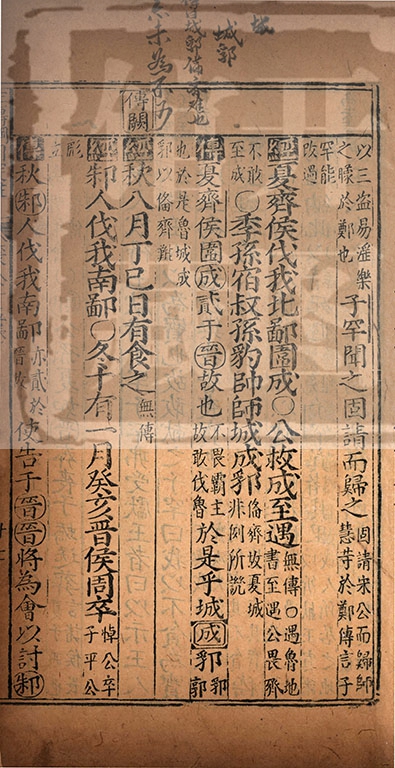 城郭
以三盗易淫樂之矇於鄭也子罕聞之固請而歸之固請宋公而歸師慧等於鄭傳言子
罕能改過
經夏齊侯伐我北鄙圍成〇公救成至遇無傳〇遇魯地書至遇公畏齊
不敢至成〇季孫宿叔孫豹帥師城成郛俻齊故夏城非例所譏
傳夏齊侯圍成貳于晉故也不畏霸主故敢伐魯於是乎城成郛郛郭
也於是魯城成郛以俻齊難
經秋八月丁巳日有食之無傳
傳闕
經邾人伐我南鄙〇冬十有一月癸亥晉侯周卒悼公卒子平公
彪立
傳秋邾人伐我南鄙亦貳於晉故使告于晉晉將為會以討邾